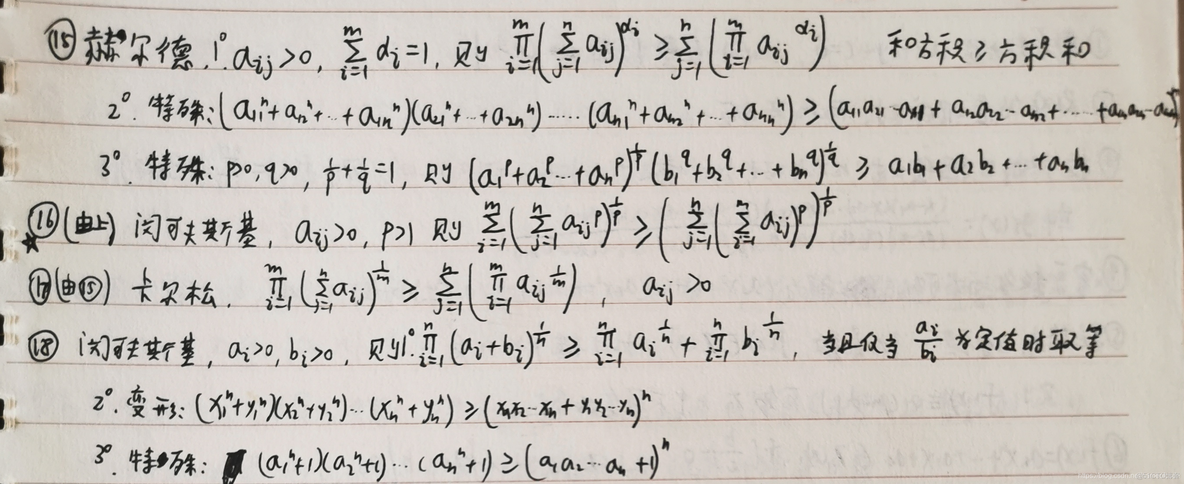 ⑮ 赫尔德. 1° a_{ij}>0, \sum_{i=1}^{m} α_i=1, 则 \prod_{i=1}^{m}(\sum_{j=1}^{n} a_{ij})^{α_i} ≥ \sum_{j=1}^{n}(\prod_{i=1}^{m} a_{ij}^{α_i}) 和方积≥方积和
2°. 特殊: (a_{11}^n+a_{12}^n+…+a_{1n}^n)(a_{21}^n+…+a_{2n}^n)……(a_{n1}^n+a_{n2}^n+…+a_{nn}^n) ≥ (a_{11}a_{21}…a_{n1}+a_{12}a_{22}…a_{n2}+……+a_{1n}a_{2n}…a_{nn})^n
3°. 特殊: p>0, q>0, \frac{1}{p}+\frac{1}{q}=1, 则 (a_1^p+a_2^p…+a_n^p)^{\frac{1}{p}}(b_1^q+b_2^q+…+b_n^q)^{\frac{1}{q}} ≥ a_1b_1+a_2b_2+…+a_nb_n
★⑯(由上) 闵可夫斯基, a_{ij}>0, p>1 则 \sum_{i=1}^{m}(\sum_{j=1}^{n} a_{ij}^p)^{\frac{1}{p}} ≥ (\sum_{j=1}^{n}(\sum_{i=1}^{m} a_{ij})^p)^{\frac{1}{p}}
⑰(由⑮) 卡尔松. \prod_{i=1}^{m}(\sum_{j=1}^{n} a_{ij})^{\frac{1}{m}} ≥ \sum_{j=1}^{n}(\prod_{i=1}^{m} a_{ij}^{\frac{1}{m}}), a_{ij}>0
⑱ 闵可夫斯基, a_i>0, b_i>0, 则1°. \prod_{i=1}^{n}(a_i+b_i)^{\frac{1}{n}} ≥ \prod_{i=1}^{n} a_i^{\frac{1}{n}}+\prod_{i=1}^{n} b_i^{\frac{1}{n}}, 当且仅当 \frac{a_i}{b_i} 为定值时取等
2°. 变形: (x_1^n+y_1^n)(x_2^n+y_2^n)…(x_n^n+y_n^n) ≥ (x_1x_2…x_n+y_1y_2…y_n)^n
3°. 特殊: (a_1^n+1)(a_2^n+1)…(a_n^n+1) ≥ (a_1a_2…a_n+1)^n